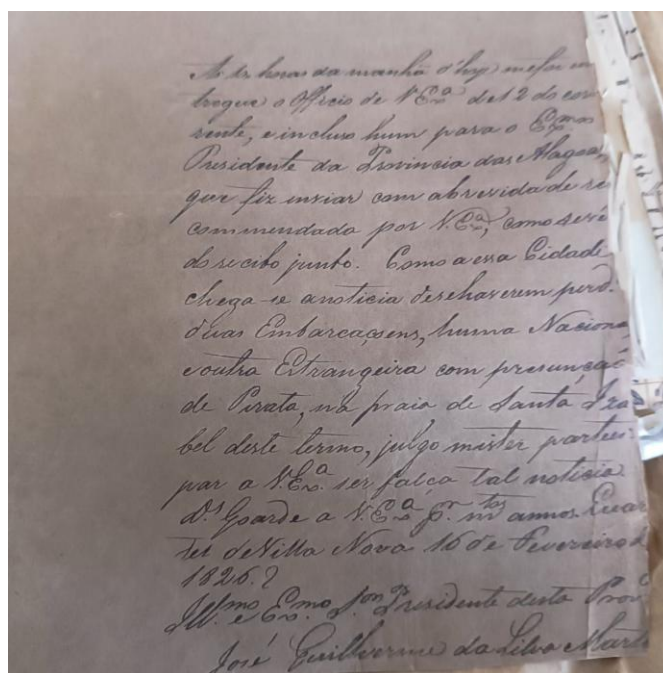 As dez horas da manhã d'hoje me foi en
tregue o Officio de V. Exª. de 12 do cor
rente, e incluso hum para o Exmo
Presidente da Provincia das Alagoas,
que fiz enviar com a brevidade re
commendada por V. Exª, como se vê
do recibo junto. Como a essa Cidade
chega-se a noticia de se haverem perd.
duas Embarcaçoens, huma Naciona
e outra Estrangeira com presunçaõ
de Pirata, na praia de Santa Iza
bel deste termo, julgo mister partici
par a V. Exª. ser falça tal noticia.
D.s Goarde a V. Exª. p.r m.tos annos. Quar
tel de Villa Nova 16 de Fevereiro d
1826.
Ill.mo e Exmo Presidente desta Prov
José Guilherme da Silva Mart